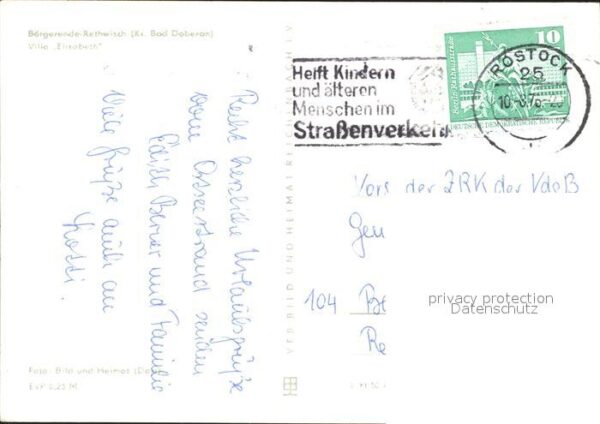 Börgerende-Rethwisch (Kr. Bad Doberan)
Villa „Elisabeth"
Recht herzliche Urlaubsgrüße
vom Ostseestrand senden
Edith Berner und Familie
Viele Grüße auch an
Lotti.
Foto: Bild und Heimat
EVP 0,25 M
VEB BILD UND HEIMAT
Helft Kindern
und älteren
Menschen im
Straßenverkehr
10
Berlin, Rathausstraße
DEUTSCHE DEMOKRATISCHE REPUBLIK
ROSTOCK
25
Vors der ZRK der VdgB
Gen
104 Be
Re
privacy protection
Datenschutz